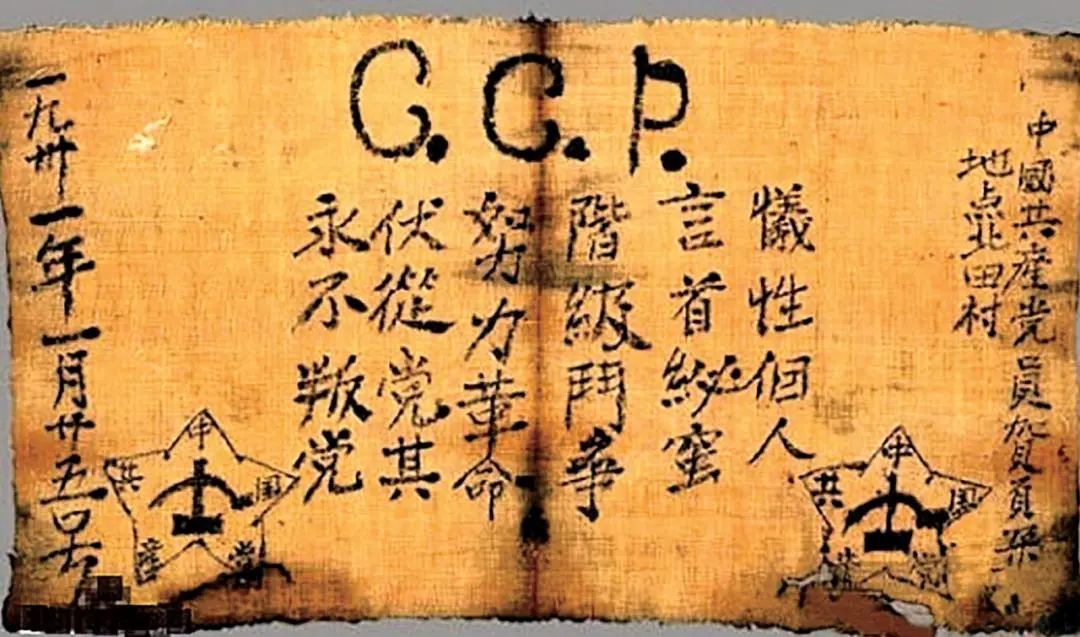 中國共產党員賀頁朵
地点北田村
C.C.P.
犧性個人
言首秘蜜
階級鬥爭
努力革命
伏從党其
永不叛党
一九卅一年一月廿五号
中国共產党
中国共產党